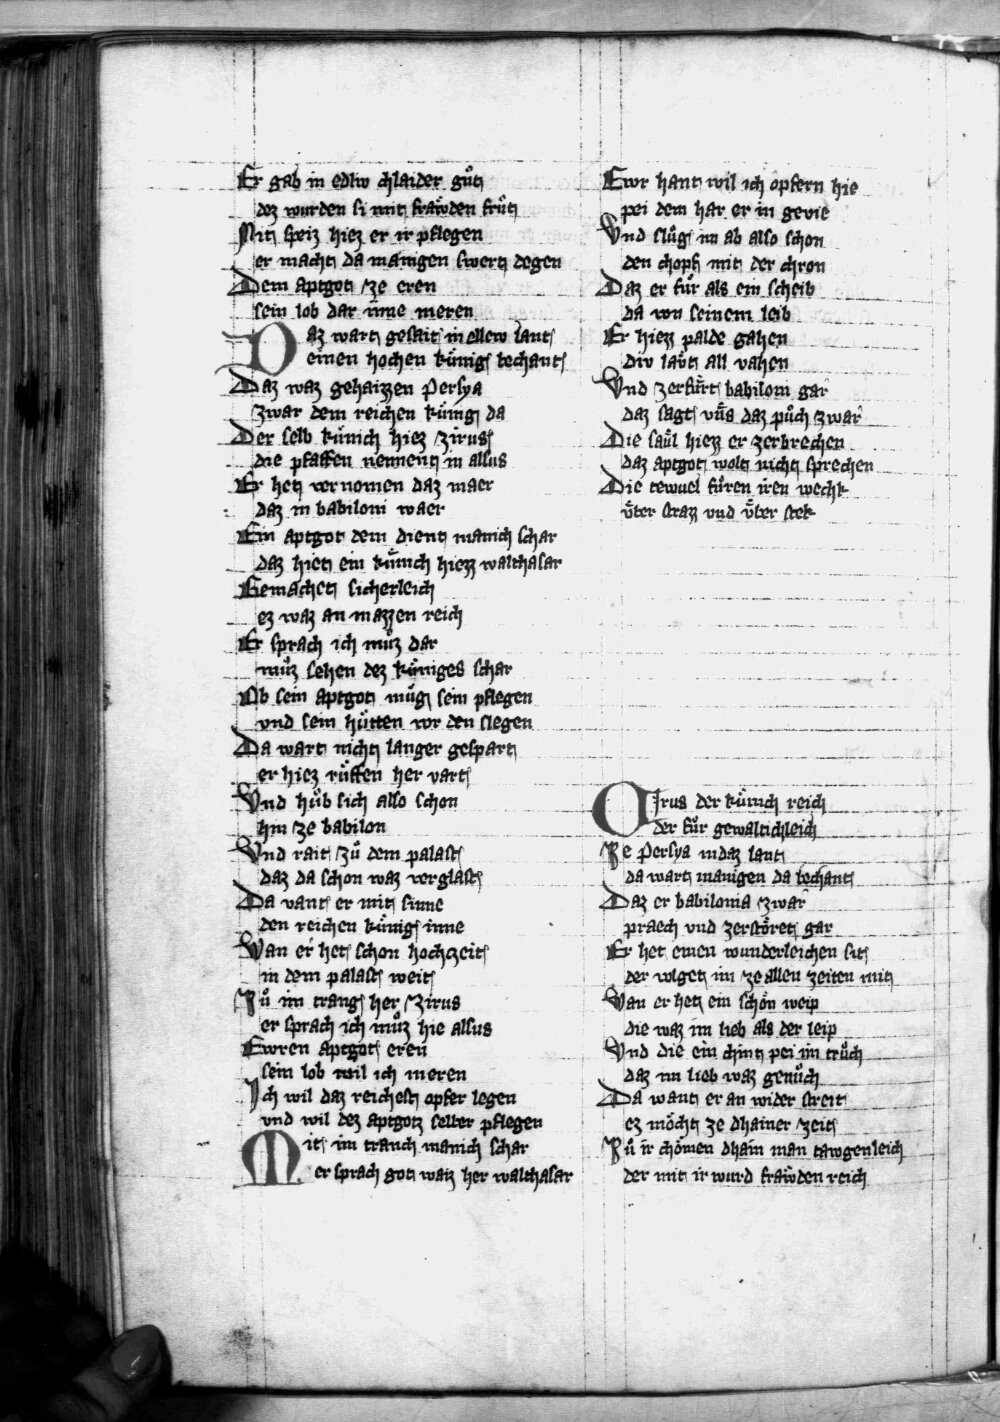 Er gab in edlw chlaider gůt
dez wurden si mit frawden frůt
Mit speiz hiez er ir pflegen
er macht da manigen swert degen
Dem aptgot ze eren
sein lob dar inne meren
Daz wart gesait in ellew lant
einen hochen kůnig bechant
Daz waz gehaizzen Persya
zwar dem reichen kůnig da
Der selb kůnich hiez zirus
die pfaffen nennent in alsus
Er het vernomen daz maer
daz in babiloni waer
Ein aptgot dem dient manich schar
daz hiet ein kůnich hiezz walthasar
Gemachet sicherleich
ez waz an mazzen reich
Er sprach ich můz dar
můz sehen dez kůniges schar
Ob sein aptgot můg sein pflegen
vnd sein hůtten vor den slegen
Da wart nicht langer gespart
er hiez růffen her vart
Vnd hůb sich also schon
hin ze babilon
Vnd rait zů dem palast
daz da schon waz verglast
Da vant er mit sinne
den reichen kůnig inne
Wan er het schon hochzeit
in dem palast weit
Zů im trang her zirus
er sprach ich můz hie alsus
Ewren aptgot eren
sein lob wil ich meren
Ich wil daz reichest opfer legen
vnd wil dez aptgotz selber pflegen
Mit im tranch manich schar
er sprach got waiz her walthasar
Ewr hant wil ich opfern hie
pei dem har er in gevie
Vnd slůg im ab also schon
den choph mit der chron
Daz er fůr als ein scheib
da von seinem leib
Er hiezz palde gahen
div laut all vahen
Vnd zerfůrt babiloni gar
daz sagt vns daz půch zwar
Die saul hiezz er zerbrechen
daz aptgot wolt nicht sprechen
Die tewuel fůren iren wechk
vber strazz vnd vber stek
Cirus der kůnich reich
der fůr gewaltichleich
Ze Persya in daz lant
da wart manigen da bechant
Daz er babilonia zwar
praech vnd zerstoret gar
Er het einen wunderleichen sit
der volget im ze allen zeiten mit
Wan er het ein schon weip
die waz im lieb als der leip
Vnd die ein chint pei im trůch
daz im lieb waz genůch
Da want er an wider streit
ez mocht ze dhainer zeit
Zů ir chomen dhain man tawgenleich
der mit ir wurd frawden reich